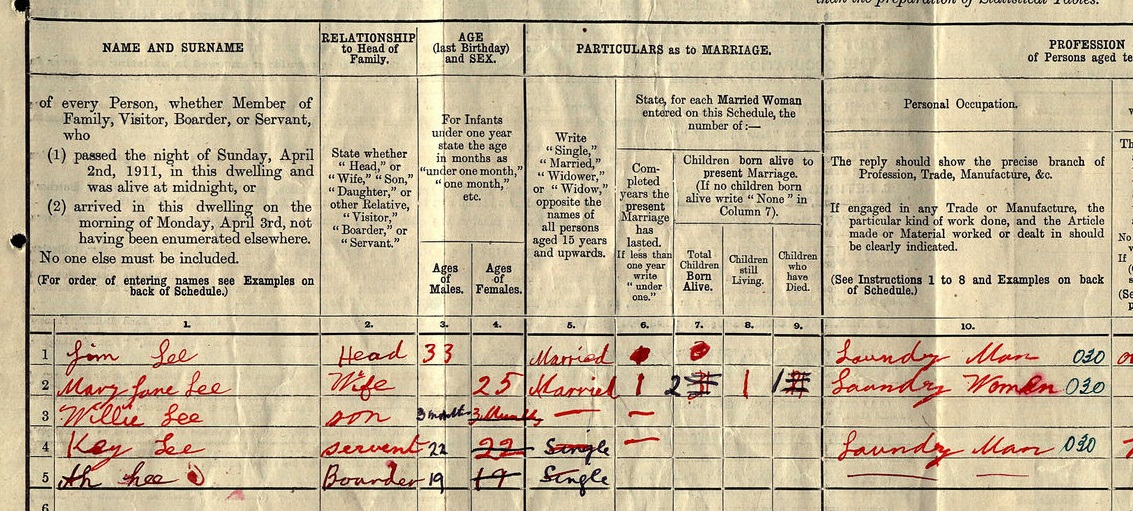 than the preparation of Statistical Tables.
NAME AND SURNAME
RELATIONSHIP
to Head of
Family.
AGE
(last Birthday)
and SEX.
PARTICULARS as to MARRIAGE.
PROFESSION
of Persons aged te
of every Person, whether Member of
Family, Visitor, Boarder, or Servant,
who
(1) passed the night of Sunday, April
2nd, 1911, in this dwelling and
was alive at midnight, or
(2) arrived in this dwelling on the
morning of Monday, April 3rd, not
having been enumerated elsewhere.
No one else must be included.
(For order of entering names see Examples on
back of Schedule.)
State whether
"Head," or
"Wife," "Son,"
"Daughter," or
other Relative,
"Visitor,"
"Boarder," or
"Servant."
For Infants
under one year
state the age
in months as
"under one month,"
"one month,"
etc.
Ages
of
Males.
Ages
of
Females.
Write
"Single,"
"Married,"
"Widower,"
or "Widow,"
opposite the
names of
all persons
aged 15 years
and upwards.
State, for each Married Woman
entered on this Schedule, the
number of:—
Com-
pleted
years the
present
Marriage
has
lasted.
If less than
one year
write
"under
one."
Children born alive to
present Marriage.
(If no children born
alive write "None" in
Column 7).
Total
Children
Born
Alive.
Children
still
Living.
Children
who
have
Died.
Personal Occupation.
The reply should show the precise branch of
Profession, Trade, Manufacture, &c.
If engaged in any Trade or Manufacture, the
particular kind of work done, and the Article
made or Material worked or dealt in should
be clearly indicated.
(See Instructions 1 to 8 and Examples on back
of Schedule.)
1. 2. 3. 4. 5. 6. 7. 8. 9. 10.
1 Jim Lee Head 33 Married Laundry Man 030
2 Mary Jane Lee Wife 25 Married 1 2 1 1 Laundry Women 030
3 Willie Lee son 3 months 3 Months — —
4 Key Lee servent 22 22 Single — Laundry Man 030
5 Ah hee Boarder 19 19 Single
6